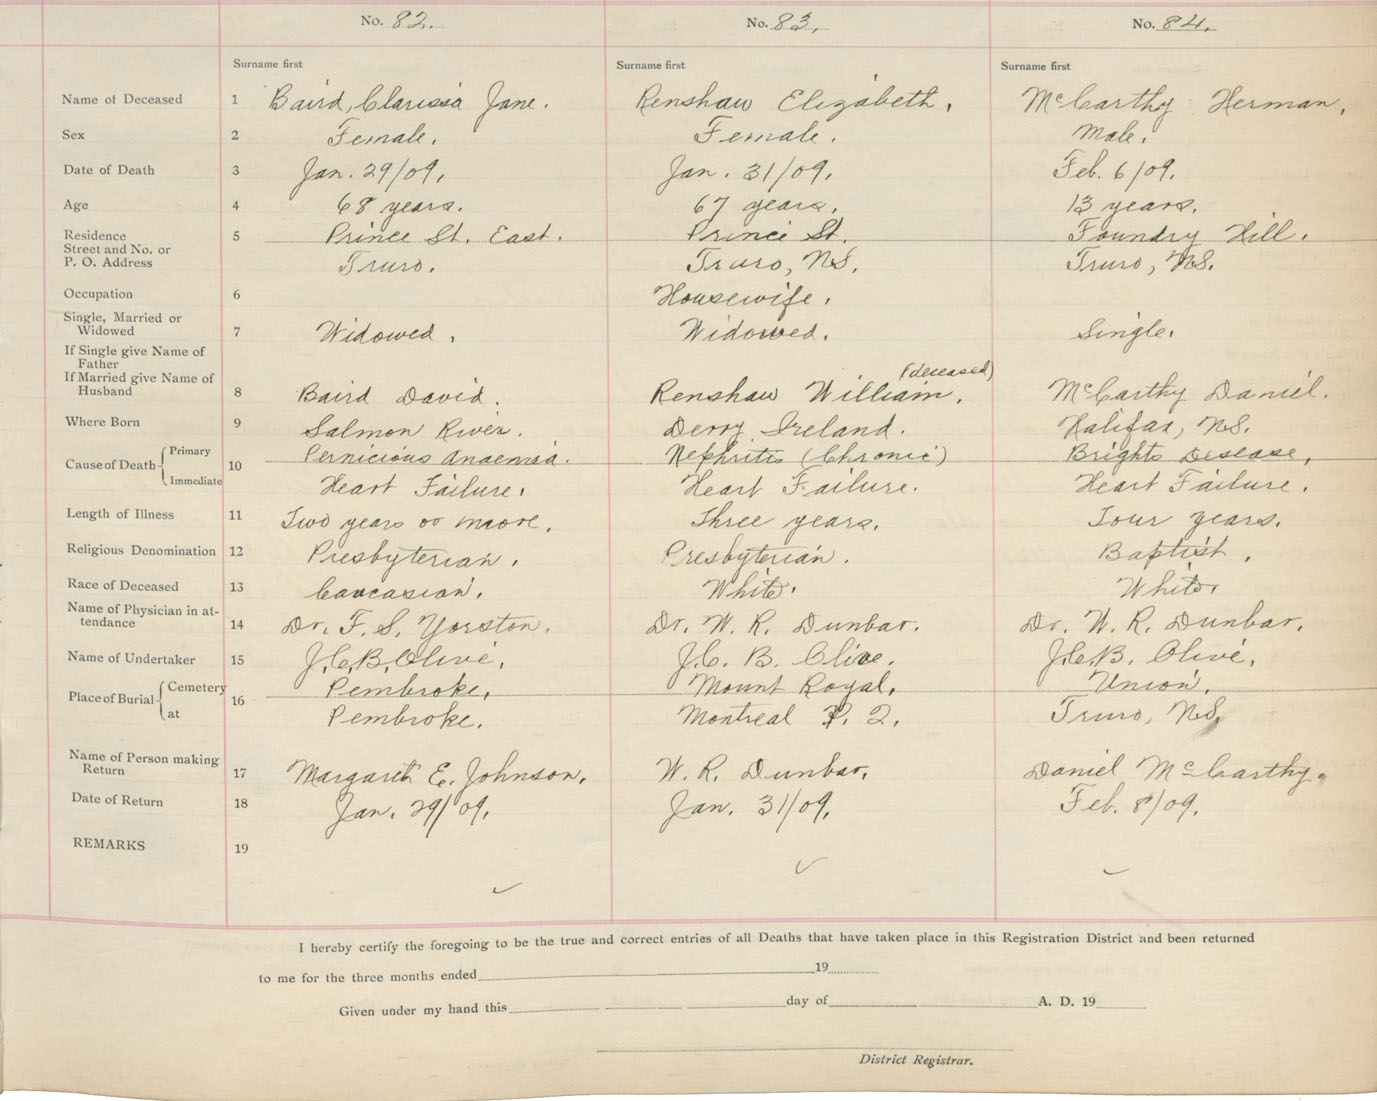 No. 82. No. 83. No. 84.
Surname first Surname first Surname first
Name of Deceased 1 Baird, Clarissa Jane. Renshaw Elizabeth. McCarthy Herman.
Sex 2 Female. Female. Male.
Date of Death 3 Jan. 29/09. Jan. 31/09. Feb. 6/09.
Age 4 68 years. 67 years. 13 years.
Residence 5 Prince St. East. Prince St. Foundry Hill.
Street and No. or
P. O. Address Truro. Truro, N.S. Truro, N.S.
Occupation 6 Housewife.
Single, Married or
Widowed 7 Widowed. Widowed. Single.
If Single give Name of
Father
If Married give Name of (deceased)
Husband 8 Baird David. Renshaw William. McCarthy Daniel.
Where Born 9 Salmon River. Derry Ireland. Halifax, N.S.
Cause of Death Primary 10 Pernicious Anaemia. Nephritis (Chronic) Brights Disease,
Immediate Heart Failure. Heart Failure. Heart Failure.
Length of Illness 11 Two years or moore. Three years. Four years.
Religious Denomination 12 Presbyterian. Presbyterian. Baptist.
Race of Deceased 13 Caucasian. White. White.
Name of Physician in at-
tendance 14 Dr. F. S. Yorston. Dr. W. R. Dunbar. Dr. W. R. Dunbar.
Name of Undertaker 15 J.C.B. Olive. J.C. B. Olive. J.C.B. Olive.
Place of Burial Cemetery 16 Pembroke. Mount Royal. Union.
at Pembroke. Montreal P. Q. Truro, N.S.
Name of Person making
Return 17 Margaret E. Johnson. W. R. Dunbar. Daniel McCarthy.
Date of Return 18 Jan. 29/09. Jan. 31/09. Feb. 8/09.
REMARKS 19
I hereby certify the foregoing to be the true and correct entries of all Deaths that have taken place in this Registration District and been returned
to me for the three months ended 19
Given under my hand this day of A. D. 19
District Registrar.